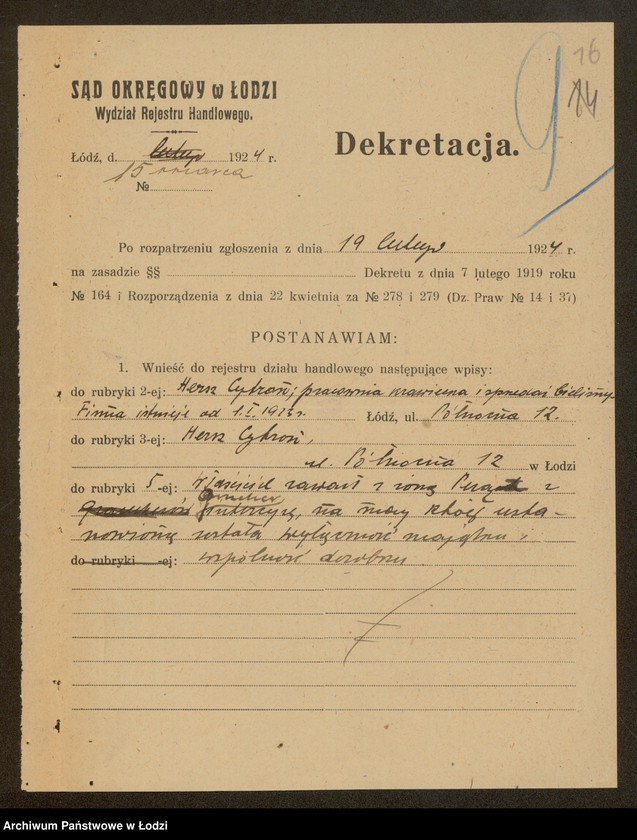 16
14
9
SĄD OKRĘGOWY w ŁODZI
Wydział Rejestru Handlowego.
Dekretacja.
Łódź, d. lutego 1924 r.
15 marca
№
Po rozpatrzeniu zgłoszenia z dnia 19 lutego 1924 r.
na zasadzie §§ Dekretu z dnia 7 lutego 1919 roku
№ 164 i Rozporządzenia z dnia 22 kwietnia za № 278 i 279 (Dz. Praw № 14 i 37)
POSTANAWIAM:
1. Wnieść do rejestru działu handlowego następujące wpisy:
do rubryki 2-ej: Hersz Cytron; pracownia krawiecka i sprzedaż bielizny.
Firma istnieje od 1.I. r. Łódź, ul. Północna 12.
do rubryki 3-ej: Hersz Cytron,
ul. Północna 12 w Łodzi
do rubryki 5-ej: Właściciel zawarł z żoną z
intercyzę, na mocy której usta-
nowioną została wyłączność majątku i
do rubryki -ej: wspólność dorobku.
Archiwum Państwowe w Łodzi